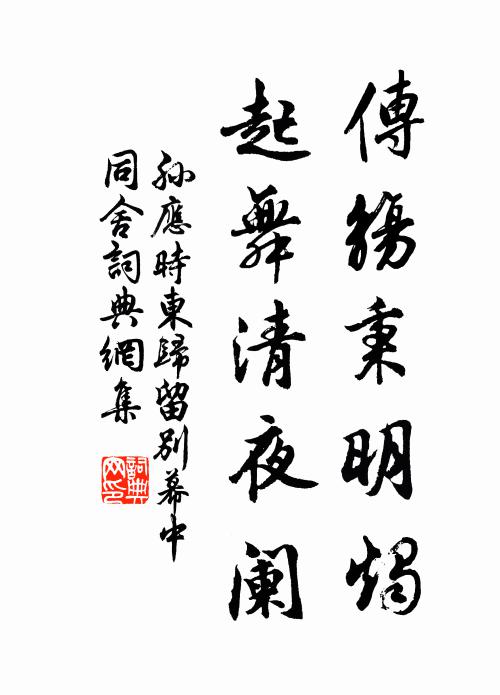 傳觴秉明燭
起舞清夜阑
孙應時東歸留别幕中
同舍詞典網集
詞典网印